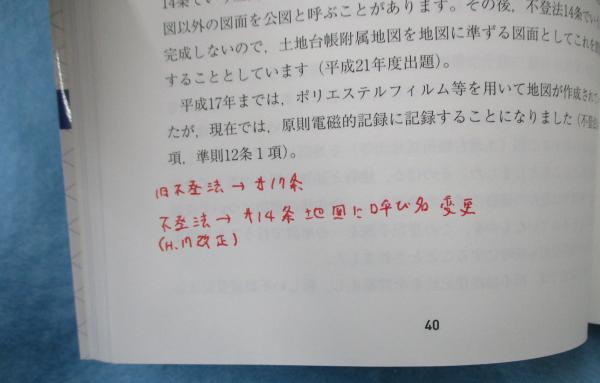 14条でい
図以外の図面を公図と呼ぶことがあります。その後，不登法14条でいう
完成しないので，土地台帳附属地図を地図に準ずる図面としてこれを
することとしています（平成21年度出題）。
平成17年までは，ポリエステルフィルム等を用いて地図が作成されて
たが，現在では，原則電磁的記録に記録することになりました（不登
項，準則12条1項）。
旧不登法→オ17条
不登法→オ14条 地図に呼び名 変更
(H.17改正)
40